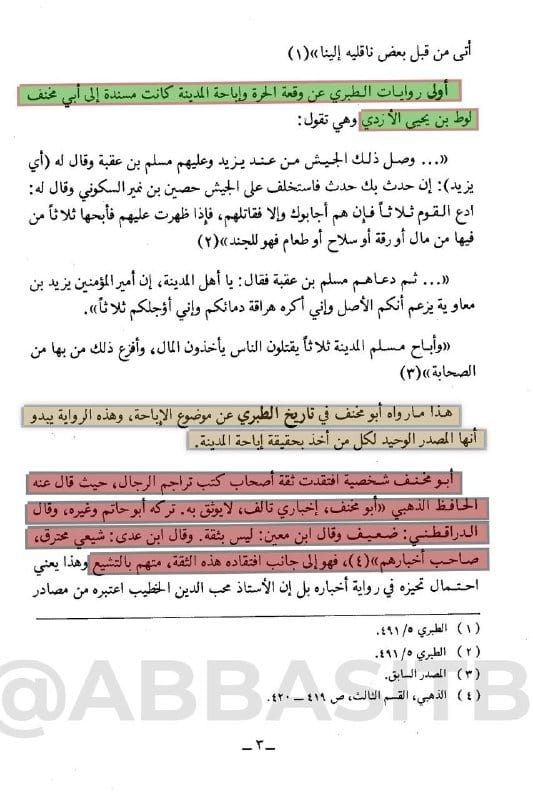 أتى من قبل بعض ناقليه إلينا»(١)
أولى روايات الطبري عن وقعة الحرة وإباحة المدينة كانت مسندة إلى أبي مخنف
لوط بن يحيى الأزدي وهي تقول:
«... وصل ذلك الجيش من عند يزيد وعليهم مسلم بن عقبة وقال له (أي
يزيد): إن حدث بك حدث فاستخلف على الجيش حصين بن نمير السكوني وقال له:
ادع القوم ثلاثاً فإن هم أجابوك وإلا فقاتلهم، فإذا ظهرت عليهم فأبحها ثلاثاً من
فيها من مال أو رقة أو سلاح أو طعام فهو للجند»(٢)
«... ثم دعاهم مسلم بن عقبة فقال: يا أهل المدينة، إن أمير المؤمنين يزيد بن
معاوية يزعم أنكم الأصل وإني أكره هراقة دمائكم وإني أؤجلكم ثلاثاً».
«وأباح مسلم المدينة ثلاثاً يقتلون الناس يأخذون المال، وأفزع ذلك من بها من
الصحابة»(٣)
هذا مارواه أبو مخنف في تاريخ الطبري عن موضوع الإباحة، وهذه الرواية يبدو
أنها المصدر الوحيد لكل من أخذ بحقيقة إباحة المدينة.
أبو مخنف شخصية افتقدت ثقة أصحاب كتب تراجم الرجال، حيث قال عنه
الحافظ الذهبي «أبو مخنف، إخباري تالف، لايوثق به. تركه أبو حاتم وغيره، وقال
الدراقطني: ضعيف وقال ابن معين: ليس بثقة. وقال ابن عدى: شيعي محترق،
صاحب أخبارهم»(٤)، فهو إلى جانب افتقاده هذه الثقة، متهم بالتشيع وهذا يعني
احتمال تحيزه في رواية أخباره بل إن الأستاذ محب الدين الخطيب اعتبره من مصادر
(١) الطبري ٤٩١/٥.
(٢) الطبري ٤٩١/٥.
(٣) المصدر السابق.
(٤) الذهبي، القسم الثالث، ص ٤١٩ — ٤٢٠.
@ABBASITB
— ٣ —